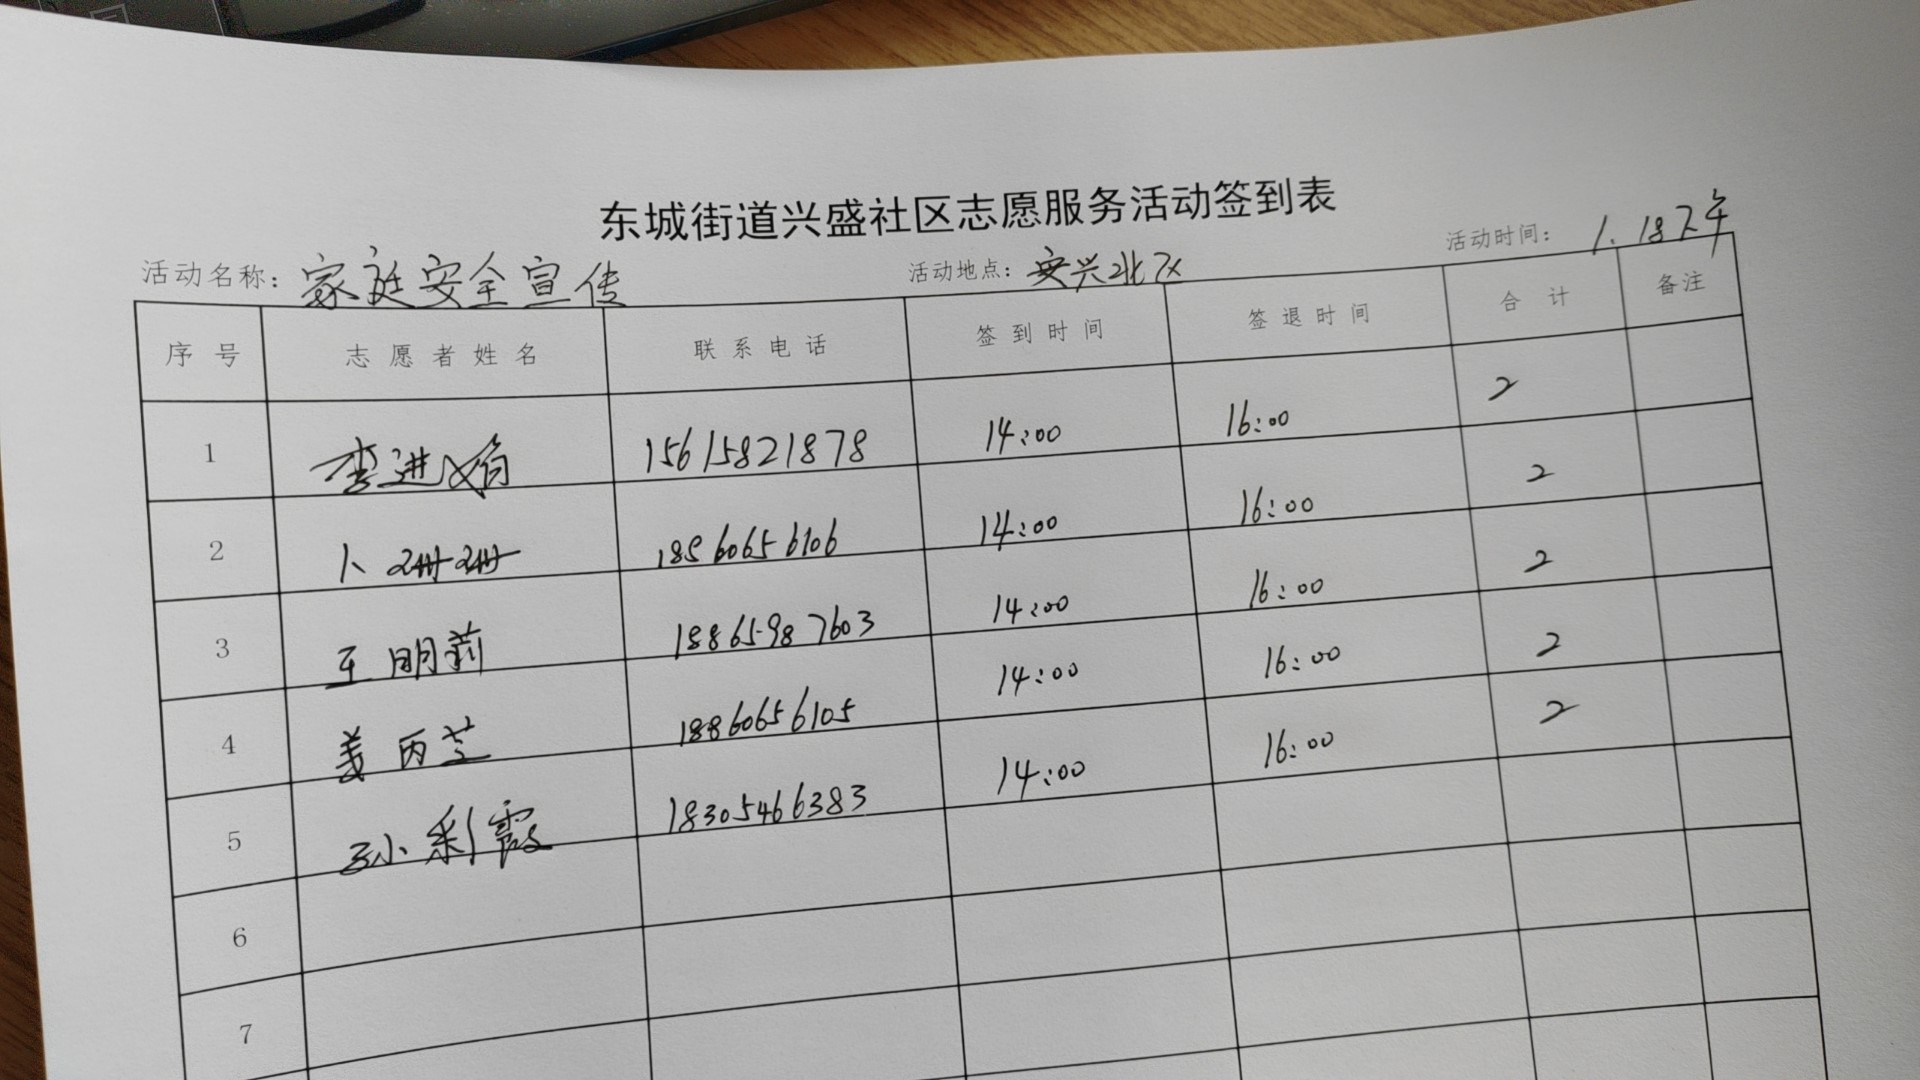 东城街道兴盛社区志愿服务活动签到表
活动名称：家庭安全宣传 活动地点：安兴北区 活动时间：1.18下午
序号 志愿者姓名 联系电话 签到时间 签退时间 合计 备注
1 李进娟 15615821878 14:00 16:00 2
2 卜珊珊 18560656106 14:00 16:00 2
3 王明莉 18865987603 14:00 16:00 2
4 姜丙芝 18860656105 14:00 16:00 2
5 孙彩霞 18305466383 14:00 16:00 2
6
7